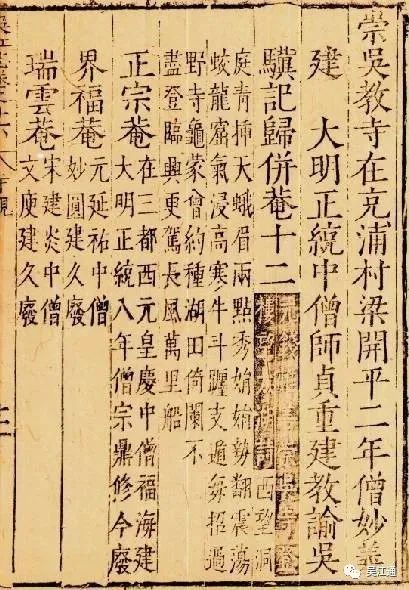 崇吳教寺在充浦村梁開平二年僧妙義
建 大明正統中僧師貞重建教諭吳
驥記歸併菴十二
西望洞
庭青插天蛾眉兩點秀娟娟勢翻震蕩
蛟龍窟氣浸高寒牛斗躔支遁每招過
野寺龜蒙曾約種湖田倚闌不
盡登臨興更駕長風萬里船
正宗菴
在三都西元皇慶中僧福海建
大明正統八年僧宗鼎修今廢
界福菴
元延祐中僧
妙圓建久廢
瑞雲菴
宋建炎中僧
文庚建久廢
吴江通